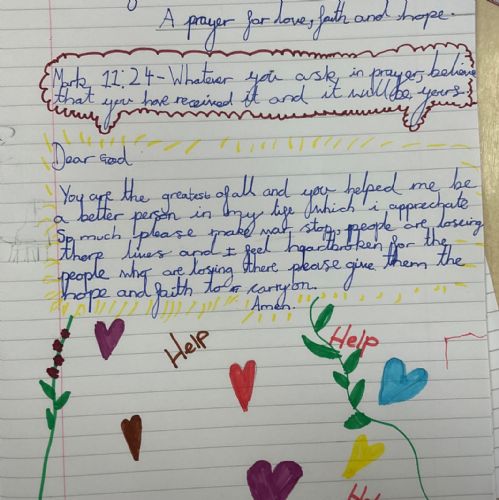 A prayer for love, faith and hope.
Mark 11:24 - Whatever you ask in prayer, believe
that you have received it and it will be yours
Dear God
You are the greatest of all and you helped me be
a better person in my life which i apprechate
so much please make war stop people are loseing
there lives and I feel heartbroken for the
people who are losing there please give them the
hope and faith to carry on.
Amen.
Help
Help
Help